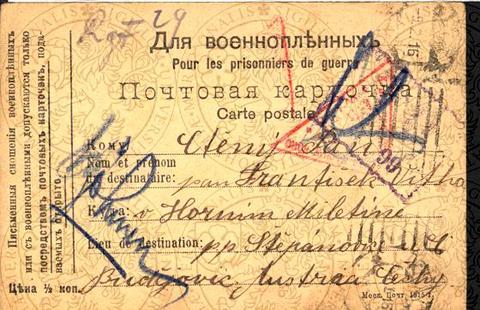 Для военноплѣнныхъ
Pour les prisonniers de guerre
Почтовая карточка
Carte postale
Кому:
Ctěný Pan
Nom et prénom
du destinataire:
pan František
Куда: v Horním Miletíně
Lieu de destination: pp. Štěpánovic u Č.
Budějovic, Austria Čechy
Цѣна ½ коп.
Моск. Почт. 1915 г.
Письменныя сношенія военноплѣнныхъ
или съ военноплѣнными допускаются только
посредствомъ почтовыхъ карточекъ, пода-
ваемыхъ открыто.
99
15